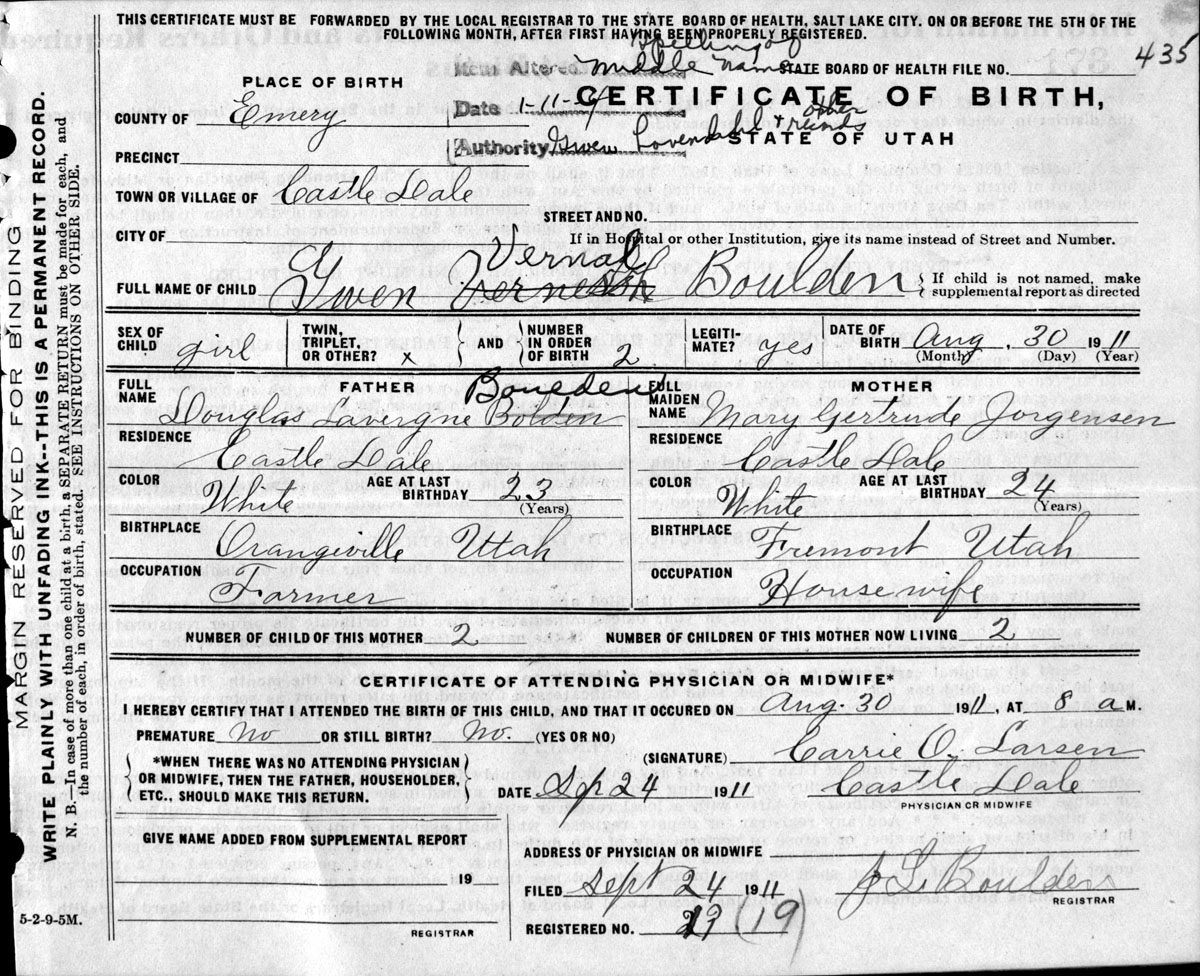 THIS CERTIFICATE MUST BE FORWARDED BY THE LOCAL REGISTRAR TO THE STATE BOARD OF HEALTH, SALT LAKE CITY. ON OR BEFORE THE 5TH OF THE
FOLLOWING MONTH, AFTER FIRST HAVING BEEN PROPERLY REGISTERED.
435
Spelling of
Altered middle name
STATE BOARD OF HEALTH FILE NO.
PLACE OF BIRTH
Date 1-11-
CERTIFICATE OF BIRTH,
COUNTY OF Emery
Authority Gwen Lovendahl + other records
STATE OF UTAH
PRECINCT
TOWN OR VILLAGE OF Castle Dale
STREET AND NO.
CITY OF
If in Hospital or other Institution, give its name instead of Street and Number.
FULL NAME OF CHILD Gwen Verna Boulden
If child is not named, make
supplemental report as directed
SEX OF CHILD girl
TWIN, TRIPLET, OR OTHER? x
AND
NUMBER IN ORDER OF BIRTH 2
LEGITIMATE? yes
DATE OF BIRTH Aug. 30 1911
(Month) (Day) (Year)
FATHER
FULL NAME Douglas Lavergne Bolden Boulden
RESIDENCE Castle Dale
COLOR White
AGE AT LAST BIRTHDAY 23
(Years)
BIRTHPLACE Orangiville Utah
OCCUPATION Farmer
MOTHER
FULL MAIDEN NAME Mary Gertrude Jorgensen
RESIDENCE Castle Dale
COLOR White
AGE AT LAST BIRTHDAY 24
(Years)
BIRTHPLACE Fremont Utah
OCCUPATION Housewife
NUMBER OF CHILD OF THIS MOTHER 2
NUMBER OF CHILDREN OF THIS MOTHER NOW LIVING 2
CERTIFICATE OF ATTENDING PHYSICIAN OR MIDWIFE*
I HEREBY CERTIFY THAT I ATTENDED THE BIRTH OF THIS CHILD, AND THAT IT OCCURED ON Aug. 30 1911, AT 8 a M.
PREMATURE No OR STILL BIRTH? No. (YES OR NO)
(SIGNATURE) Carrie O. Larsen
*WHEN THERE WAS NO ATTENDING PHYSICIAN
OR MIDWIFE, THEN THE FATHER, HOUSEHOLDER,
ETC., SHOULD MAKE THIS RETURN.
DATE Sep 24 1911
Castle Dale
PHYSICIAN OR MIDWIFE
GIVE NAME ADDED FROM SUPPLEMENTAL REPORT
19
REGISTRAR
ADDRESS OF PHYSICIAN OR MIDWIFE
FILED Sept 24 1911
J L Boulden
REGISTRAR
REGISTERED NO. 19 (19)
5-2-9-5M.
MARGIN RESERVED FOR BINDING
WRITE PLAINLY WITH UNFADING INK--THIS IS A PERMANENT RECORD.
N. B.—In case of more than one child at a birth, a SEPARATE RETURN must be made for each, and
the number of each, in order of birth, stated. SEE INSTRUCTIONS ON OTHER SIDE.